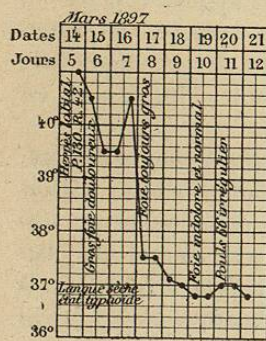 Mars 1897
Dates 14 15 16 17 18 19 20 21
Jours 5 6 7 8 9 10 11 12
Herpès labial
P. 130. R. 42.
Gros foie douloureux
Foie toujours gros
Foie indolore et normal
Pouls 66 irrégulier
40°
39°
38°
37°
Langue sèche
état typhoïde
36°